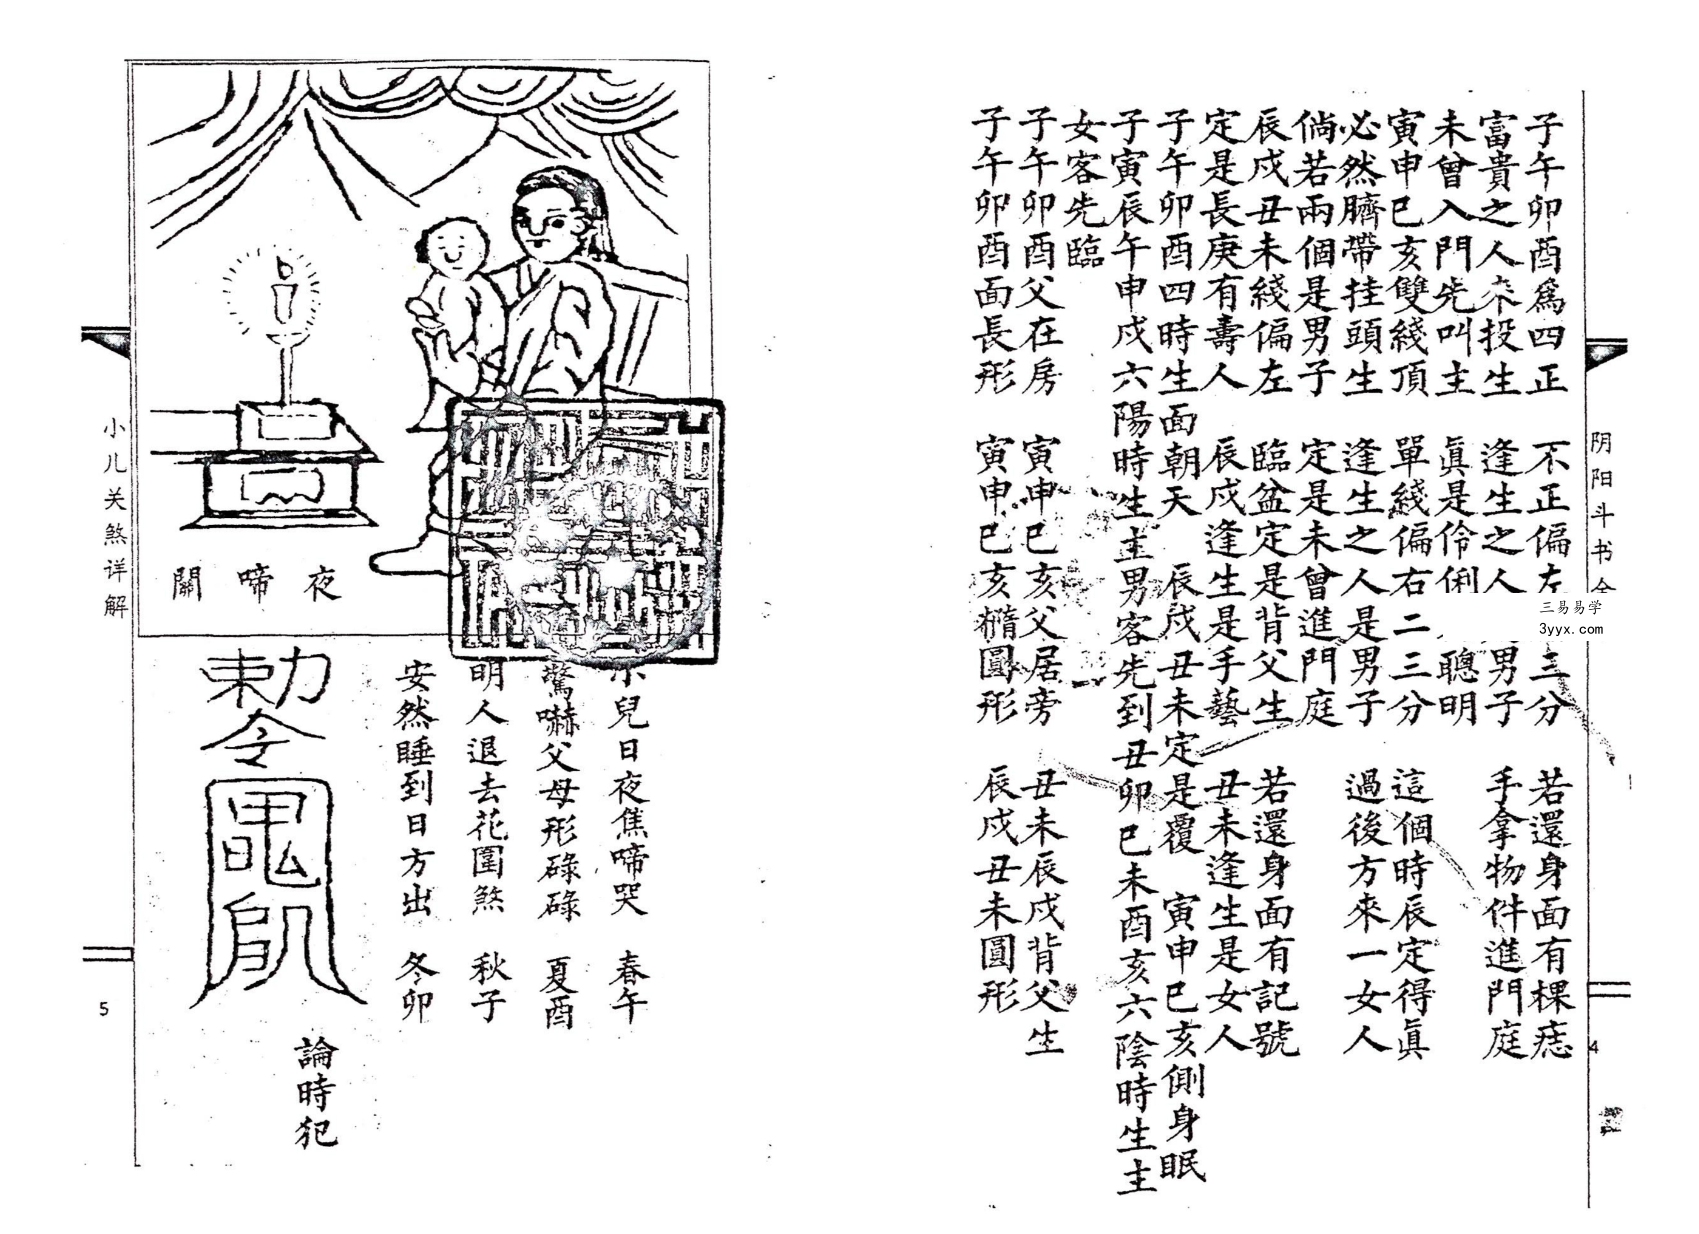 阴阳斗书
4
子午卯酉爲四正 不正偏左 三分 若還身面有棵痣
富貴之人來投生 逢生之人 男子 手拿物件進門庭
未曾入門先叫主 眞是伶俐 聰明
寅申巳亥雙綫頂 單綫偏右二三分 這個時辰定得眞
必然臍帶挂頭生 逢生之人是男子 過後方來一女人
倘若兩個是男子 定是未曾進門庭
辰戍丑未綫偏左 臨盆定是背父生 若還身面有記號
定是長庚有壽人 辰戍逢生是手藝 丑未逢生是女人
子午卯酉四時生面朝天 辰戍丑未定是覆 寅申巳亥側身眠
子寅辰午申戍六陽時生主男客先到丑卯巳未酉亥六陰時生主
女客先臨
子午卯酉父在房 寅申巳亥父居旁 丑未辰戍背父生
子午卯酉面長形 寅申巳亥橢圓形 辰戍丑未圓形
三易易学
3yyx.com
夜啼關
小兒日夜焦啼哭 春午
驚嚇父母形碌碌 夏酉
明人退去花園煞 秋子
安然睡到日方出 冬卯
論時犯
勅令
小儿关煞详解
5